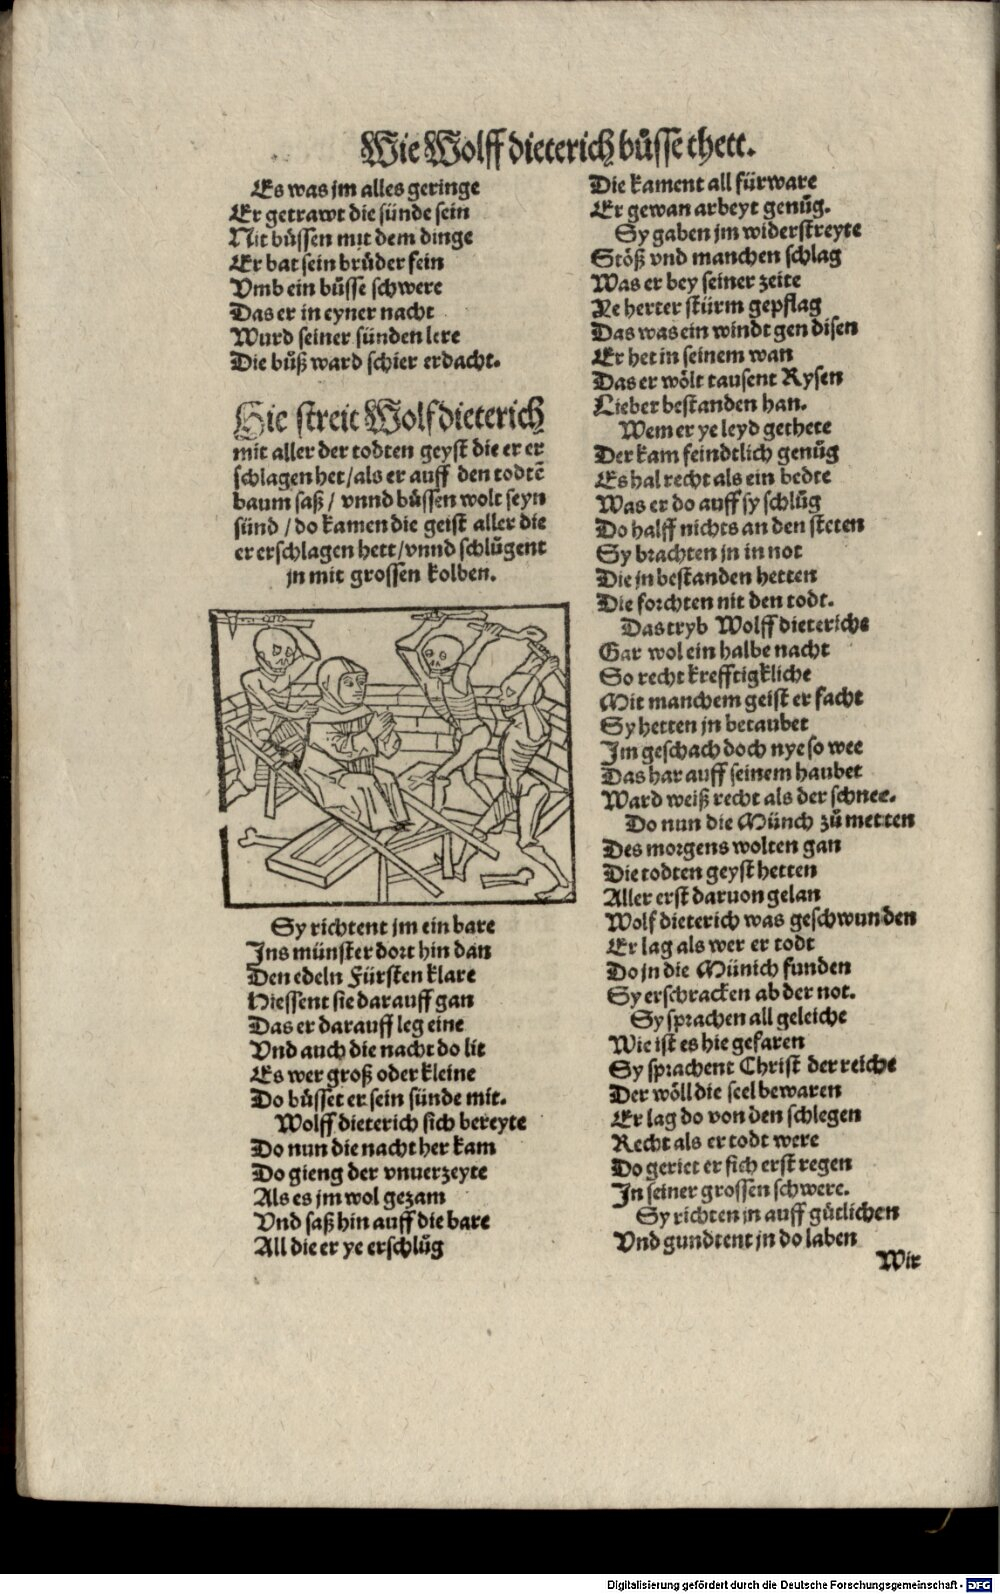 Wie Wolff dieterich buͤsse thett.
Es was jm alles geringe
Er getrawt die sünde sein
Nit büssen mit dem dinge
Er bat sein bruͤder fein
Vmb ein buͤsse schwere
Das er in eyner nacht
Wurd seiner sünden lere
Die buͤß ward schier erdacht.
Hie streit Wolfdieterich
mit aller der todten geyst die er er
schlagen het / als er auff den todtē
baum saß / vnnd buͤssen wolt seyn
sünd / do kamen die geist aller die
er erschlagen hett / vnnd schluͤgent
jn mit grossen kolben.
Sy richtent jm ein bare
Ins münster dort hin dan
Den edeln Fürsten klare
Hiessent sie darauff gan
Das er darauff leg eine
Vnd auch die nacht do lit
Es wer groß oder kleine
Do buͤsset er sein sünde mit.
Wolff dieterich sich bereyte
Do nun die nacht her kam
Do gieng der vnuerzeyte
Als es jm wol gezam
Vnd saß hin auff die bare
All die er ye erschluͤg
Die kament all fürware
Er gewan arbeyt genuͤg.
Sy gaben jm widerstreyte
Stöß vnd manchen schlag
Was er bey seiner zeite
Ye herter stürm gepflag
Das was ein windt gen disen
Er het in seinem wan
Das er wölt tausent Rysen
Lieber bestanden han.
Wem er ye leyd gethete
Der kam feindtlich genuͤg
Es hal recht als ein bedte
Was er do auff sy schluͤg
Do halff nichts an den steten
Sy brachten jn in not
Die jn bestanden hetten
Die forchten nit den todt.
Das tryb Wolff dieteriche
Gar wol ein halbe nacht
So recht krefftigkliche
Mit manchem geist er facht
Sy hetten jn betaubet
Im geschach doch nye so wee
Das har auff seinem haubet
Ward weiß recht als der schnee.
Do nun die Münch zuͤ metten
Des morgens wolten gan
Die todten geyst hetten
Aller erst daruon gelan
Wolf dieterich was geschwunden
Er lag als wer er todt
Do jn die Münich funden
Sy erschracken ab der not.
Sy sprachen all geleiche
Wie ist es hie gefaren
Sy sprachent Christ der reiche
Der wöll die seel bewaren
Er lag do von den schlegen
Recht als er todt were
Do geriet er sich erst regen
In seiner grossen schwere.
Sy richten jn auff guͤtlichen
Vnd gundtent jn do laben
Wir
Digitalisierung gefördert durch die Deutsche Forschungsgemeinschaft - DFG